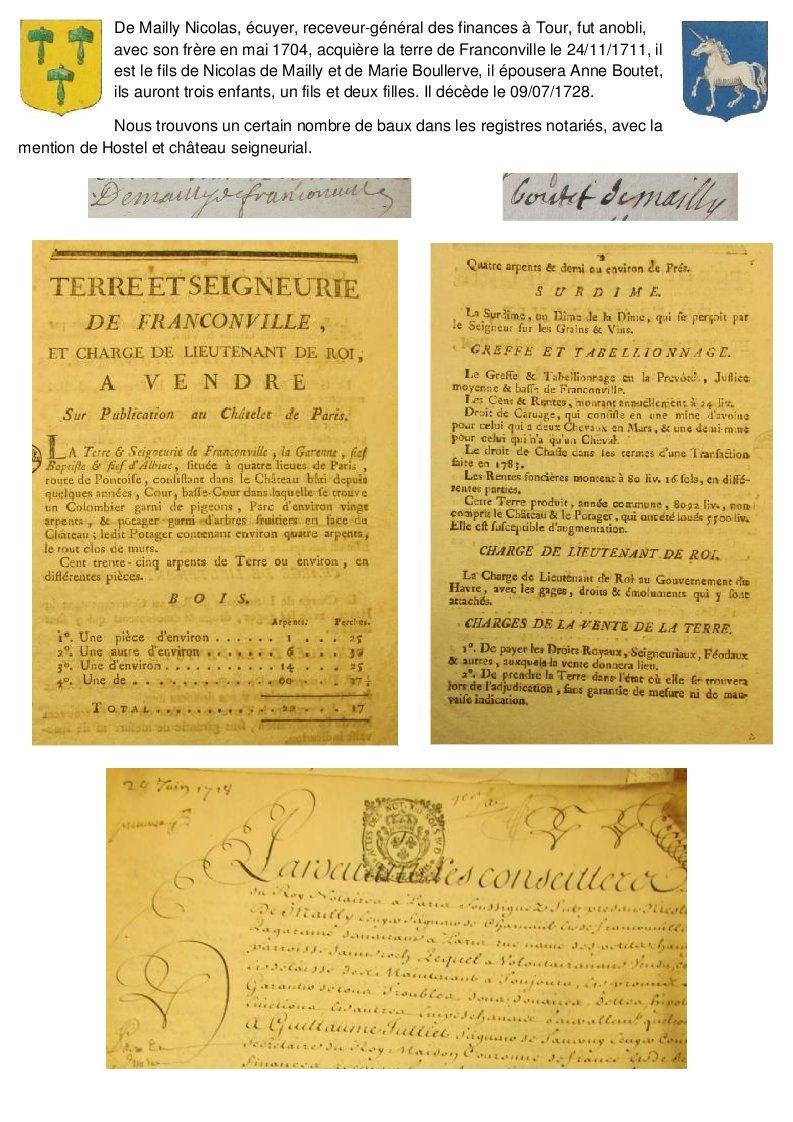 De Mailly Nicolas, écuyer, receveur-général des finances à Tour, fut anobli,
avec son frère en mai 1704, acquière la terre de Franconville le 24/11/1711, il
est le fils de Nicolas de Mailly et de Marie Boullerve, il épousera Anne Boutet,
ils auront trois enfants, un fils et deux filles. Il décède le 09/07/1728.
Nous trouvons un certain nombre de baux dans les registres notariés, avec la
mention de Hostel et château seigneurial.
Demailly de franconville
boutet demailly
TERRE ET SEIGNEURIE
DE FRANCONVILLE,
ET CHARGE DE LIEUTENANT DE ROI,
A VENDRE
Sur Publication au Châtelet de Paris.
LA Terre & Seigneurie de Franconville, la Garenne, fief
Baptiste & fief d'Albiac, située à quatre lieues de Paris,
route de Pontoise, consistant dans le Château bâti depuis
quelques années, Cour, basse-Cour dans laquelle se trouve
un Colombier garni de pigeons, Parc d'environ vingt
arpents, & potager garni d'arbres fruitiers en face du
Château; ledit Potager contenant environ quatre arpents,
le tout clos de murs.
Cent trente-cinq arpents de Terre ou environ, en
différentes pièces.
BOIS.
Arpents. Perches.
1°. Une pièce d'environ ...... 1 ... 25
2°. Une autre d'environ ....... 6
3°. Une d'environ ........ 14 ... 25
4°. Une de
TOTAL ............ 22 ... 17
Quatre arpents & demi ou environ de Prés.
SURDIME.
La Surdîme, ou Dîme de la Dîme, qui se perçoit par
le Seigneur sur les Grains & Vins.
GREFFE ET TABELLIONNAGE.
Le Greffe & Tabellionnage en la Prevôté, Justice
moyenne & basse de Franconville.
Les Cens & Rentes, montant annuellement à 24 liv.
Droit de Caruage, qui consiste en une mine d'avoine
pour celui qui a deux Chevaux en Mars, & une demi-mine
pour celui qui n'a qu'un Cheval.
Le droit de Chasse dans les termes d'une Transaction
faite en 1783.
Les Rentes foncières montent à 80 liv. 16 sols, en diffé-
rentes parties.
Cette Terre produit, année commune, 8092 liv., non
compris le Château & le Potager, qui ont été loués 5500 liv.
Elle est susceptible d'augmentation.
CHARGE DE LIEUTENANT DE ROI.
La Charge de Lieutenant de Roi au Gouvernement du
Havre, avec les gages, droits & émoluments qui y sont
attachés.
CHARGES DE LA VENTE DE LA TERRE.
1°. De payer les Droits Royaux, Seigneuriaux, Féodaux
& autres, auxquels la vente donnera lieu.
2°. De prendre la Terre dans l'état où elle se trouvera
lors de l'adjudication, sans garantie de mesure ni de mau-
vaise indication.
Juin
Pardevant les conseillers
du Roy Notaires a Paris soussignez
De Mailly
a Paris rue
parroisse Saint roch Lequel a Volontairement
A Guillaume
du Roy Maison Couronne de france